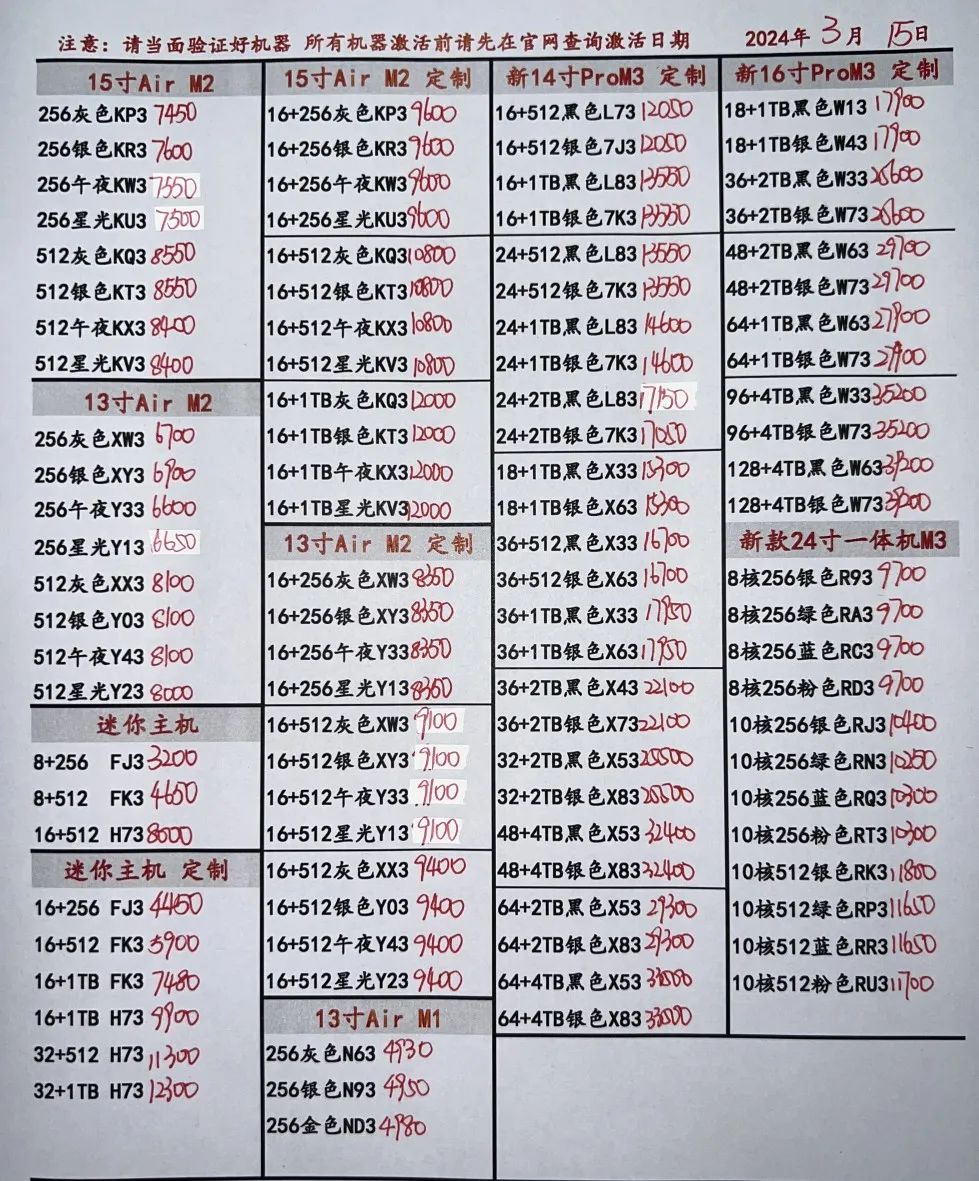 注意：请当面验证好机器 所有机器激活前请先在官网查询激活日期 2024年 3月 15日
15寸Air M2
256灰色KP3 7450
256银色KR3 7600
256午夜KW3 7550
256星光KU3 7500
512灰色KQ3 8550
512银色KT3 8550
512午夜KX3 8400
512星光KV3 8400
13寸Air M2
256灰色XW3 6700
256银色XY3 6900
256午夜Y33 6600
256星光Y13 6650
512灰色XX3 8100
512银色Y03 8100
512午夜Y43 8100
512星光Y23 8000
迷你主机
8+256 FJ3 3200
8+512 FK3 4650
16+512 H73 8000
迷你主机 定制
16+256 FJ3 4450
16+512 FK3 5900
16+1TB FK3 7480
16+1TB H73 9900
32+512 H73 11300
32+1TB H73 12300
15寸Air M2 定制
16+256灰色KP3 9600
16+256银色KR3 9600
16+256午夜KW3 9600
16+256星光KU3 9600
16+512灰色KQ3 10800
16+512银色KT3 10800
16+512午夜KX3 10800
16+512星光KV3 10800
16+1TB灰色KQ3 12000
16+1TB银色KT3 12000
16+1TB午夜KX3 12000
16+1TB星光KV3 12000
13寸Air M2 定制
16+256灰色XW3 8350
16+256银色XY3 8350
16+256午夜Y33 8350
16+256星光Y13 8350
16+512灰色XW3 9100
16+512银色XY3 9100
16+512午夜Y33 9100
16+512星光Y13 9100
16+512灰色XX3 9400
16+512银色Y03 9400
16+512午夜Y43 9400
16+512星光Y23 9400
13寸Air M1
256灰色N63 4930
256银色N93 4950
256金色ND3 4980
新14寸ProM3 定制
16+512黑色L73 12050
16+512银色7J3 12050
16+1TB黑色L83 13550
16+1TB银色7K3 13550
24+512黑色L83 13550
24+512银色7K3 13550
24+1TB黑色L83 14600
24+1TB银色7K3 14600
24+2TB黑色L83 17150
24+2TB银色7K3 17050
18+1TB黑色X33 15300
18+1TB银色X63 15300
36+512黑色X33 16700
36+512银色X63 16700
36+1TB黑色X33 17950
36+1TB银色X63 17950
36+2TB黑色X43 22100
36+2TB银色X73 22100
32+2TB黑色X53
32+2TB银色X83
48+4TB黑色X53 32400
48+4TB银色X83 32400
64+2TB黑色X53 29300
64+2TB银色X83 29300
64+4TB黑色X53
64+4TB银色X83
新16寸ProM3 定制
18+1TB黑色W13 17900
18+1TB银色W43 17900
36+2TB黑色W33
36+2TB银色W73
48+2TB黑色W63 29700
48+2TB银色W73 29700
64+1TB黑色W63 27900
64+1TB银色W73 27900
96+4TB黑色W33 35200
96+4TB银色W73 35200
128+4TB黑色W63
128+4TB银色W73
新款24寸一体机M3
8核256银色R93 9700
8核256绿色RA3 9700
8核256蓝色RC3 9700
8核256粉色RD3 9700
10核256银色RJ3 10400
10核256绿色RN3 10250
10核256蓝色RQ3 10300
10核256粉色RT3 10300
10核512银色RK3 11800
10核512绿色RP3 11650
10核512蓝色RR3 11650
10核512粉色RU3 11700